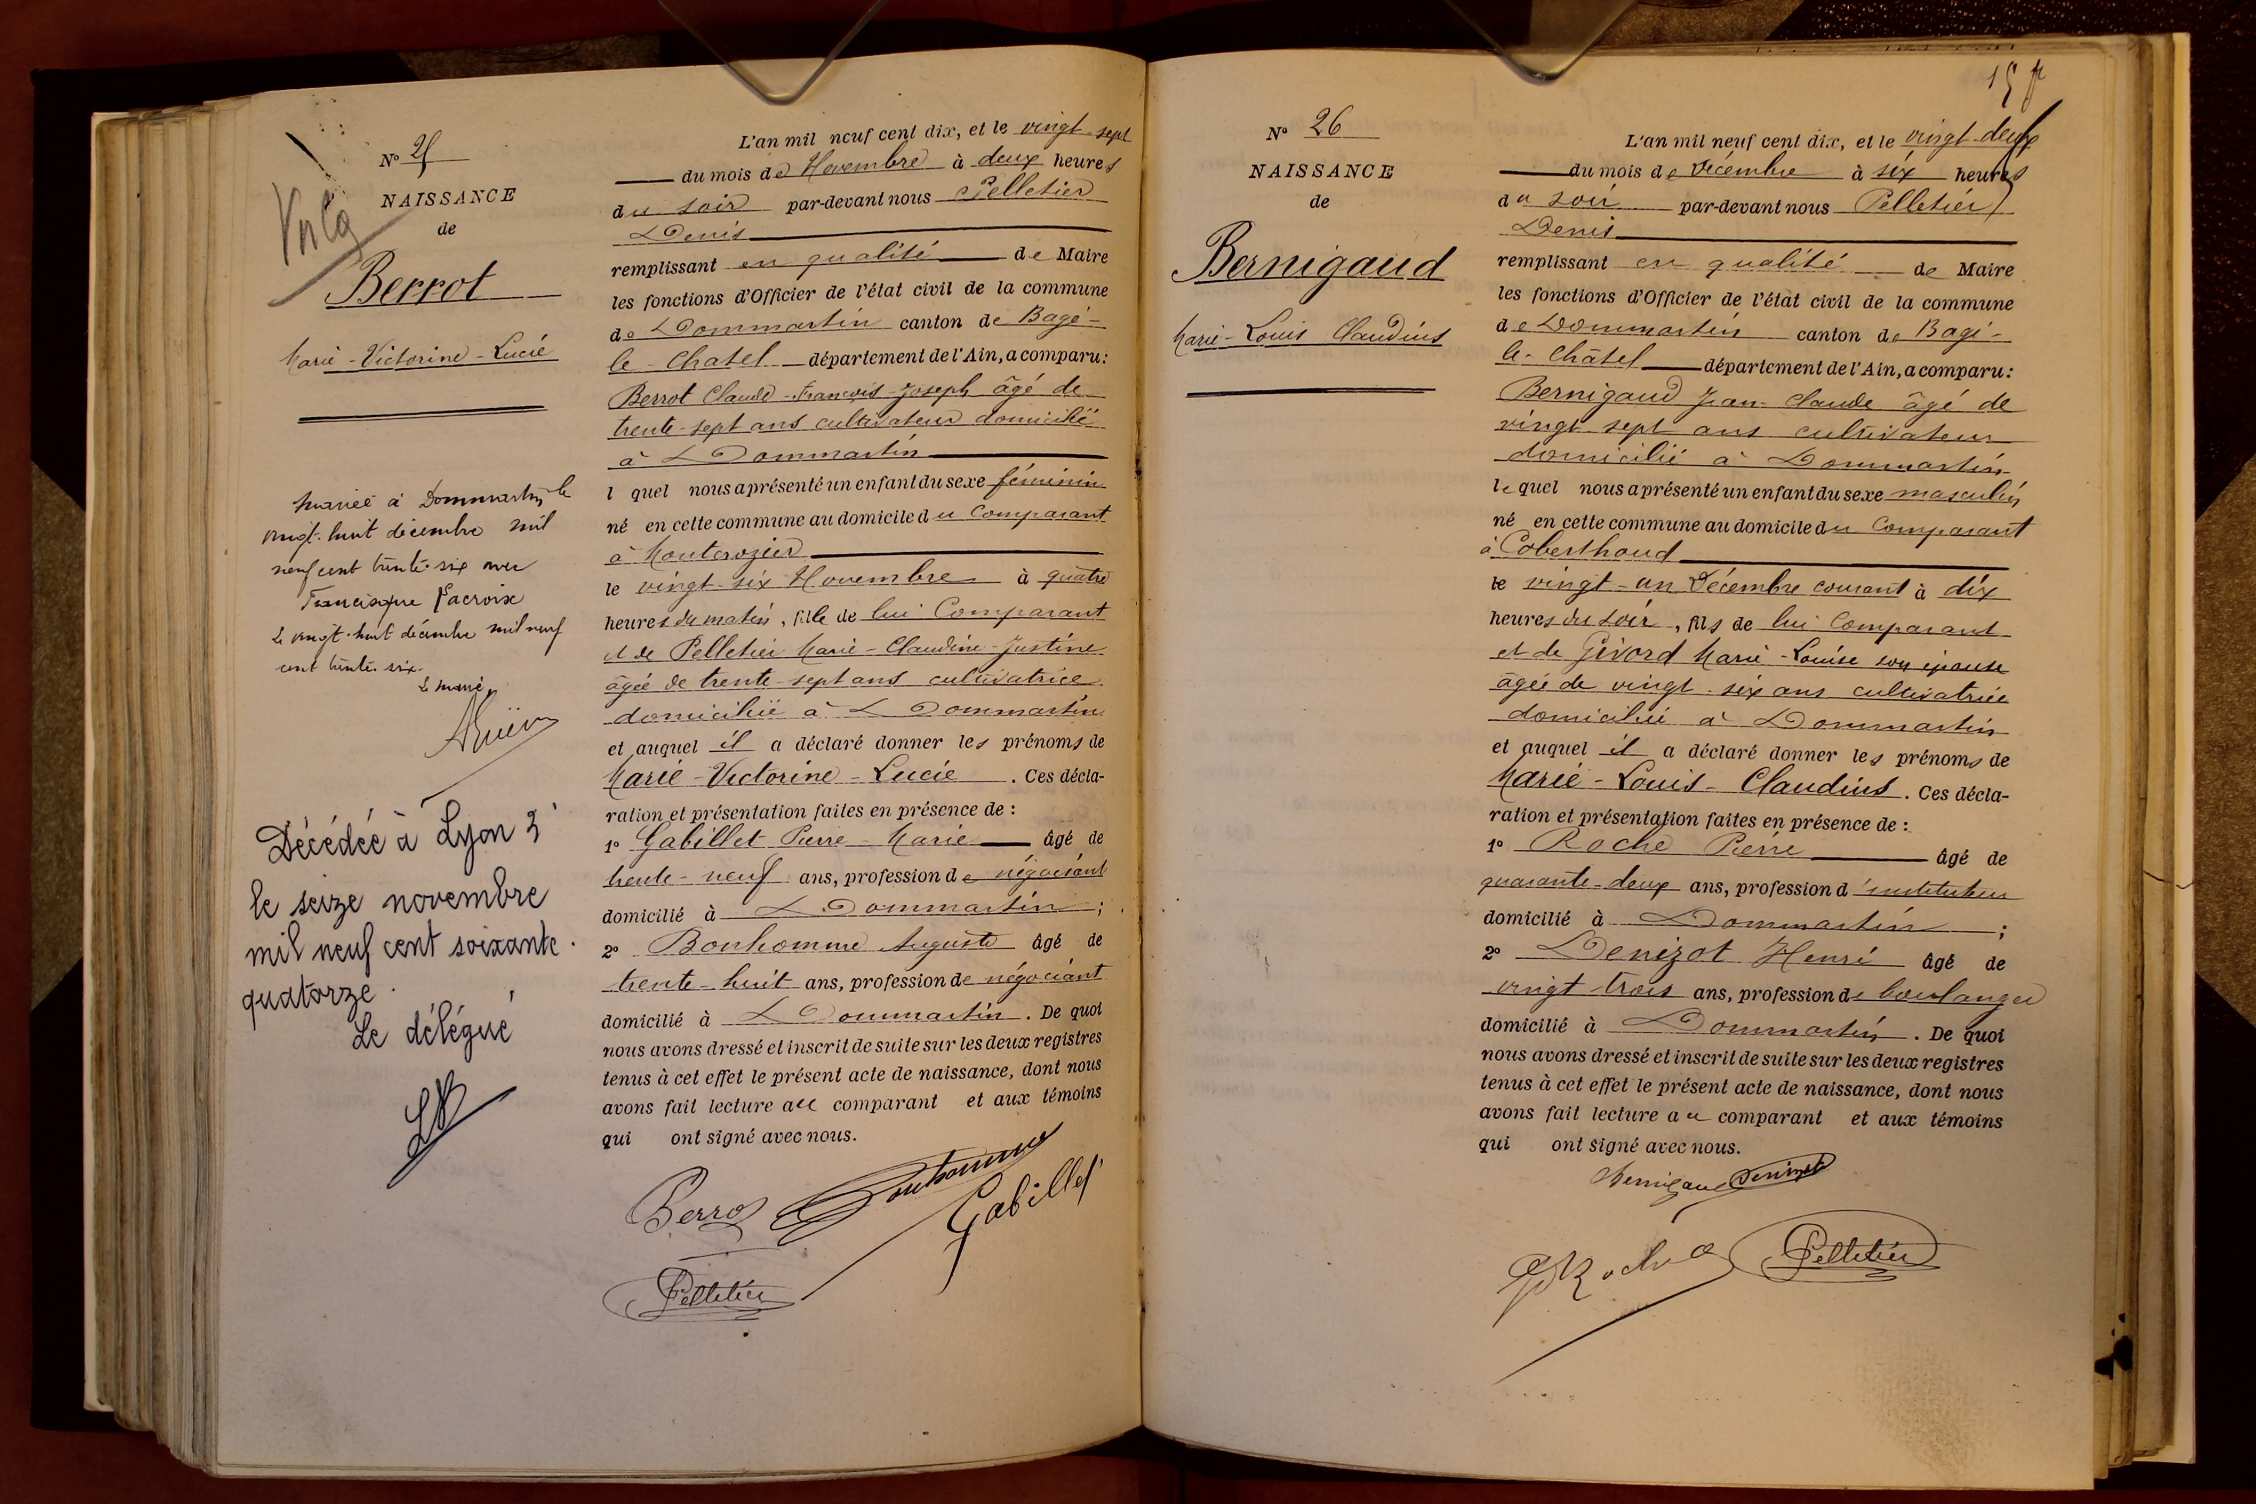 Nº 25
NAISSANCE
de
Berrot
Marie-Victorine-Lucie
Mariée à Dommartin le
vingt-huit décembre mil
neuf cent trente-six avec
Francisque Lacroix
Le vingt-huit décembre mil neuf
cent trente-six.
Le maire,
Décédée à Lyon 3
le seize novembre
mil neuf cent soixante
quatorze.
Le délégué
L'an mil neuf cent dix, et le vingt-sept
du mois de Novembre à deux heures
du soir par-devant nous Pelletier
Denis
remplissant en qualité de Maire
les fonctions d'Officier de l'état civil de la commune
de Dommartin canton de Bagé-
le-Chatel département de l'Ain, a comparu:
Berrot Claude-François-Joseph âgé de
trente-sept ans cultivateur domicilié
à Dommartin
l quel nous a présenté un enfant du sexe féminin
né en cette commune au domicile du Comparant
à Montcrozier
le vingt-six Novembre à quatre
heures du matin, fille de lui Comparant
et de Pelletier Marie-Claudine-Justine
âgée de trente-sept ans cultivatrice
domiciliée à Dommartin
et auquel il a déclaré donner les prénoms de
Marie-Victorine-Lucie. Ces décla-
ration et présentation faites en présence de :
1º Gabillet Pierre-Marie âgé de
trente-neuf ans, profession de négociant
domicilié à Dommartin ;
2º Bonhomme Auguste âgé de
trente-huit ans, profession de négociant
domicilié à Dommartin. De quoi
nous avons dressé et inscrit de suite sur les deux registres
tenus à cet effet le présent acte de naissance, dont nous
avons fait lecture au comparant et aux témoins
qui ont signé avec nous.
Berrot Bonhomme
Gabillet
Pelletier
Nº 26
NAISSANCE
de
Bernigaud
Marie-Louis Claudius
L'an mil neuf cent dix, et le vingt-deux
du mois de Décembre à six heures
du soir par-devant nous Pelletier
Denis
remplissant en qualité de Maire
les fonctions d'Officier de l'état civil de la commune
de Dommartin canton de Bagé-
le-Châtel département de l'Ain, a comparu:
Bernigaud Jean-Claude âgé de
vingt-sept ans cultivateur
domicilié à Dommartin
lequel nous a présenté un enfant du sexe masculin
né en cette commune au domicile du Comparant
à Coberthoud
le vingt-un Décembre courant à dix
heures du soir, fils de lui Comparant
et de Givord Marie-Louise son épouse
âgée de vingt-six ans cultivatrice
domiciliée à Dommartin
et auquel il a déclaré donner les prénoms de
Marie-Louis-Claudius. Ces décla-
ration et présentation faites en présence de :
1º Roche Pierre âgé de
quarante-deux ans, profession d'instituteur
domicilié à Dommartin ;
2º Denizot Henri âgé de
vingt-trois ans, profession de boulanger
domicilié à Dommartin. De quoi
nous avons dressé et inscrit de suite sur les deux registres
tenus à cet effet le présent acte de naissance, dont nous
avons fait lecture au comparant et aux témoins
qui ont signé avec nous.
Bernigaud Denizot
P Roche Pelletier